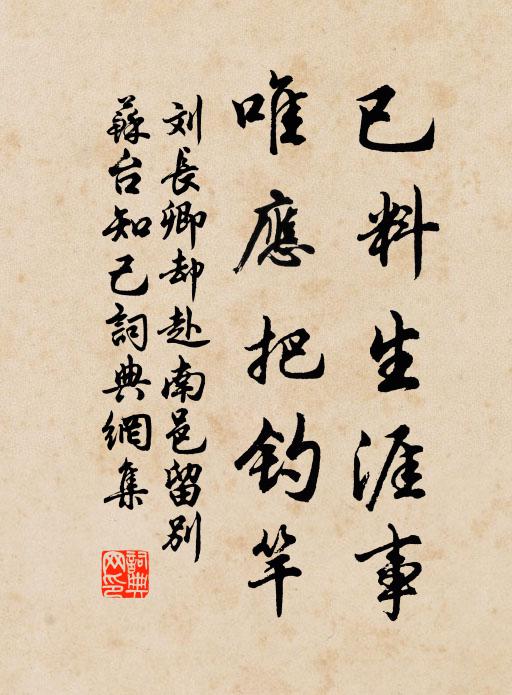 已料生涯事
唯應把钓竿
刘長卿却赴南邑留别
蘇台知己詞典網集
詞典网印